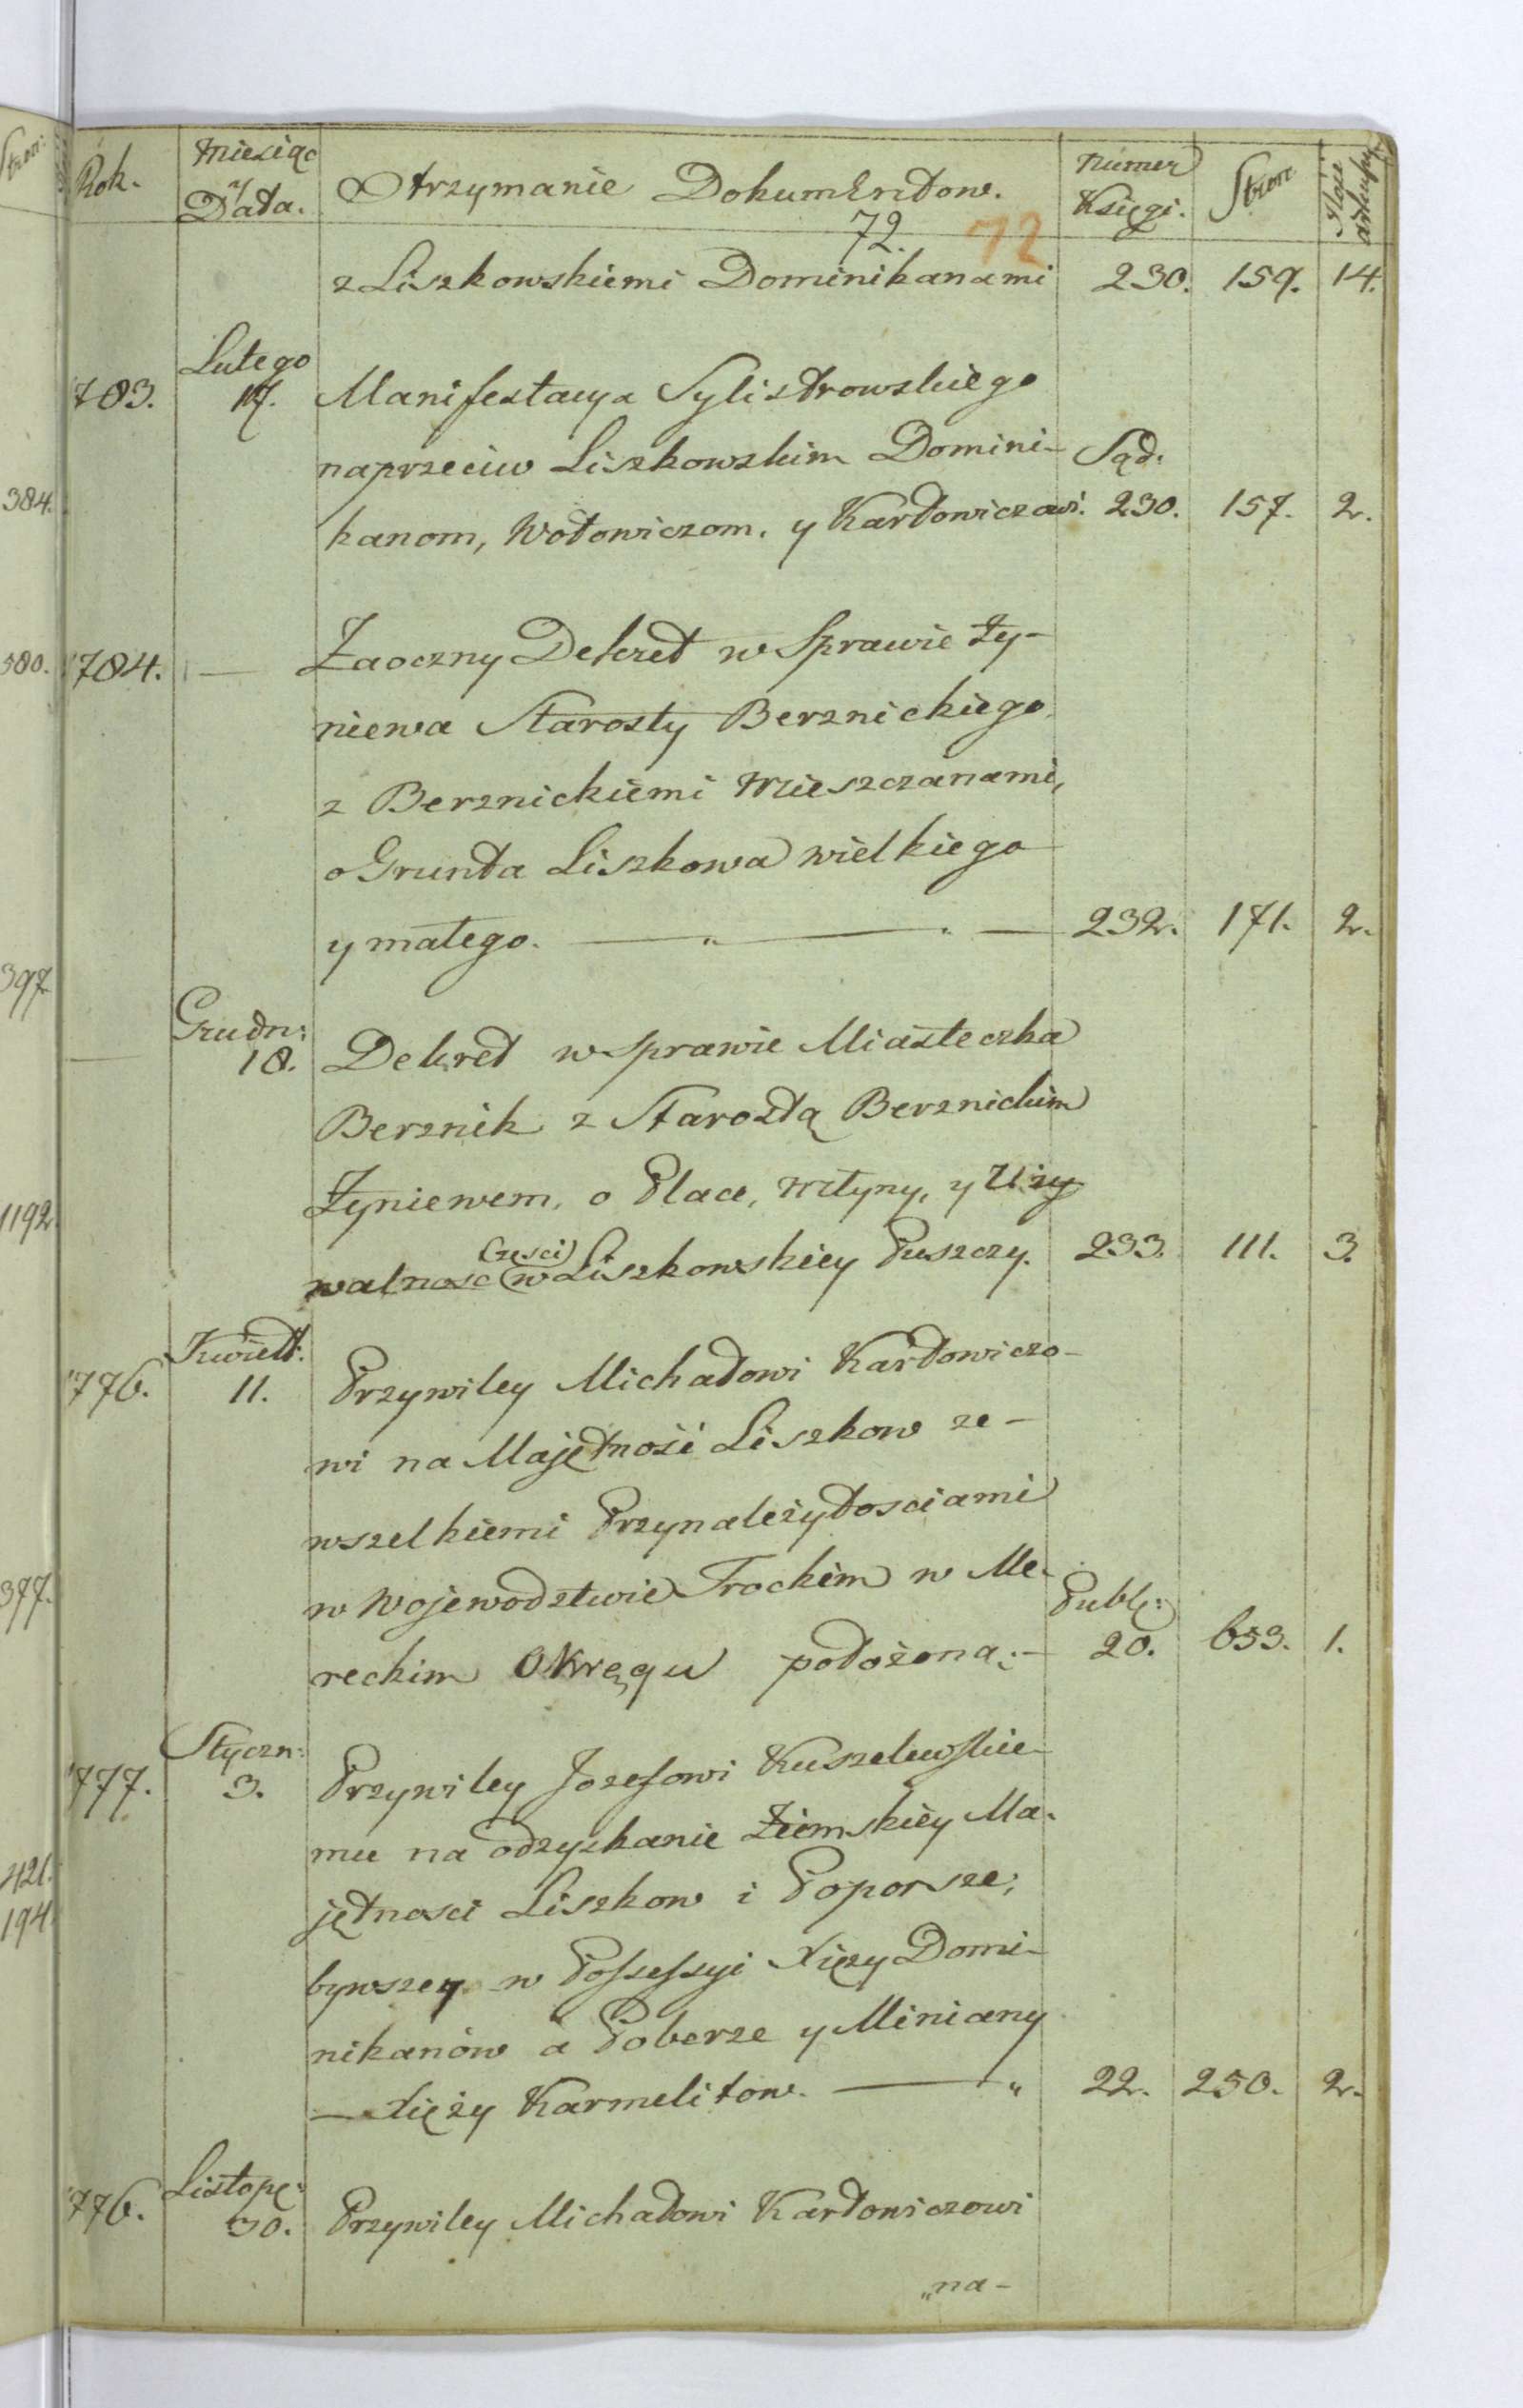 Rok. Miesiąc y Data. Otrzymanie Dokumentow. Numer Księgi. Stron.
72. 72
z Liszkowskiemi Dominikanami 230. 159. 14.
Lutego
1783. 17. Manifestacya Sylistrowskiego
naprzeciw Liszkowskim Domini- Sąd:
kanom, Wołowiczom, y Karłowiczowi. 230. 157. 2.
1784. — Zaoczny Dekret w Sprawie Ży-
niewa Starosty Berznickiego
z Berznickiemi Mieszczanami,
o Grunta Liszkowa wielkiego
y małego. — „ — „ — 232. 171. 2.
Grudn:
— 18. Dekret w Sprawie Miasteczka
Berznik z Starostą Berznickim
Żyniewem, o Place, Młyny, y Uży
Częsci
walnosc w Liszkowskiey Puszczy. 233. 111. 3.
Kwiett:
1776. 11. Przywiley Michałowi Karłowiczo-
wi na Majętność Liszkow ze-
wszelkiemi Przynależytosciami
w Wojewodztwie Trockim w Me- Publ:
reckim Okręgu położoną.— 20. 653. 1.
Styczn:
1777. 3. Przywiley Jozefowi Kuszelewskie-
mu na odzyskanie Ziemskiey Ma-
jętnosci Liszkow i Poporsze,
bywszey w Possessyi Xięży Domi-
nikanów a Poberze y Miniany
— Xięży Karmelitow. — „ 22. 250. 2.
Listop:
1776. 30. Przywiley Michałowi Karłowiczowi
„na-
384.
580.
397
1192
377.
421.
194